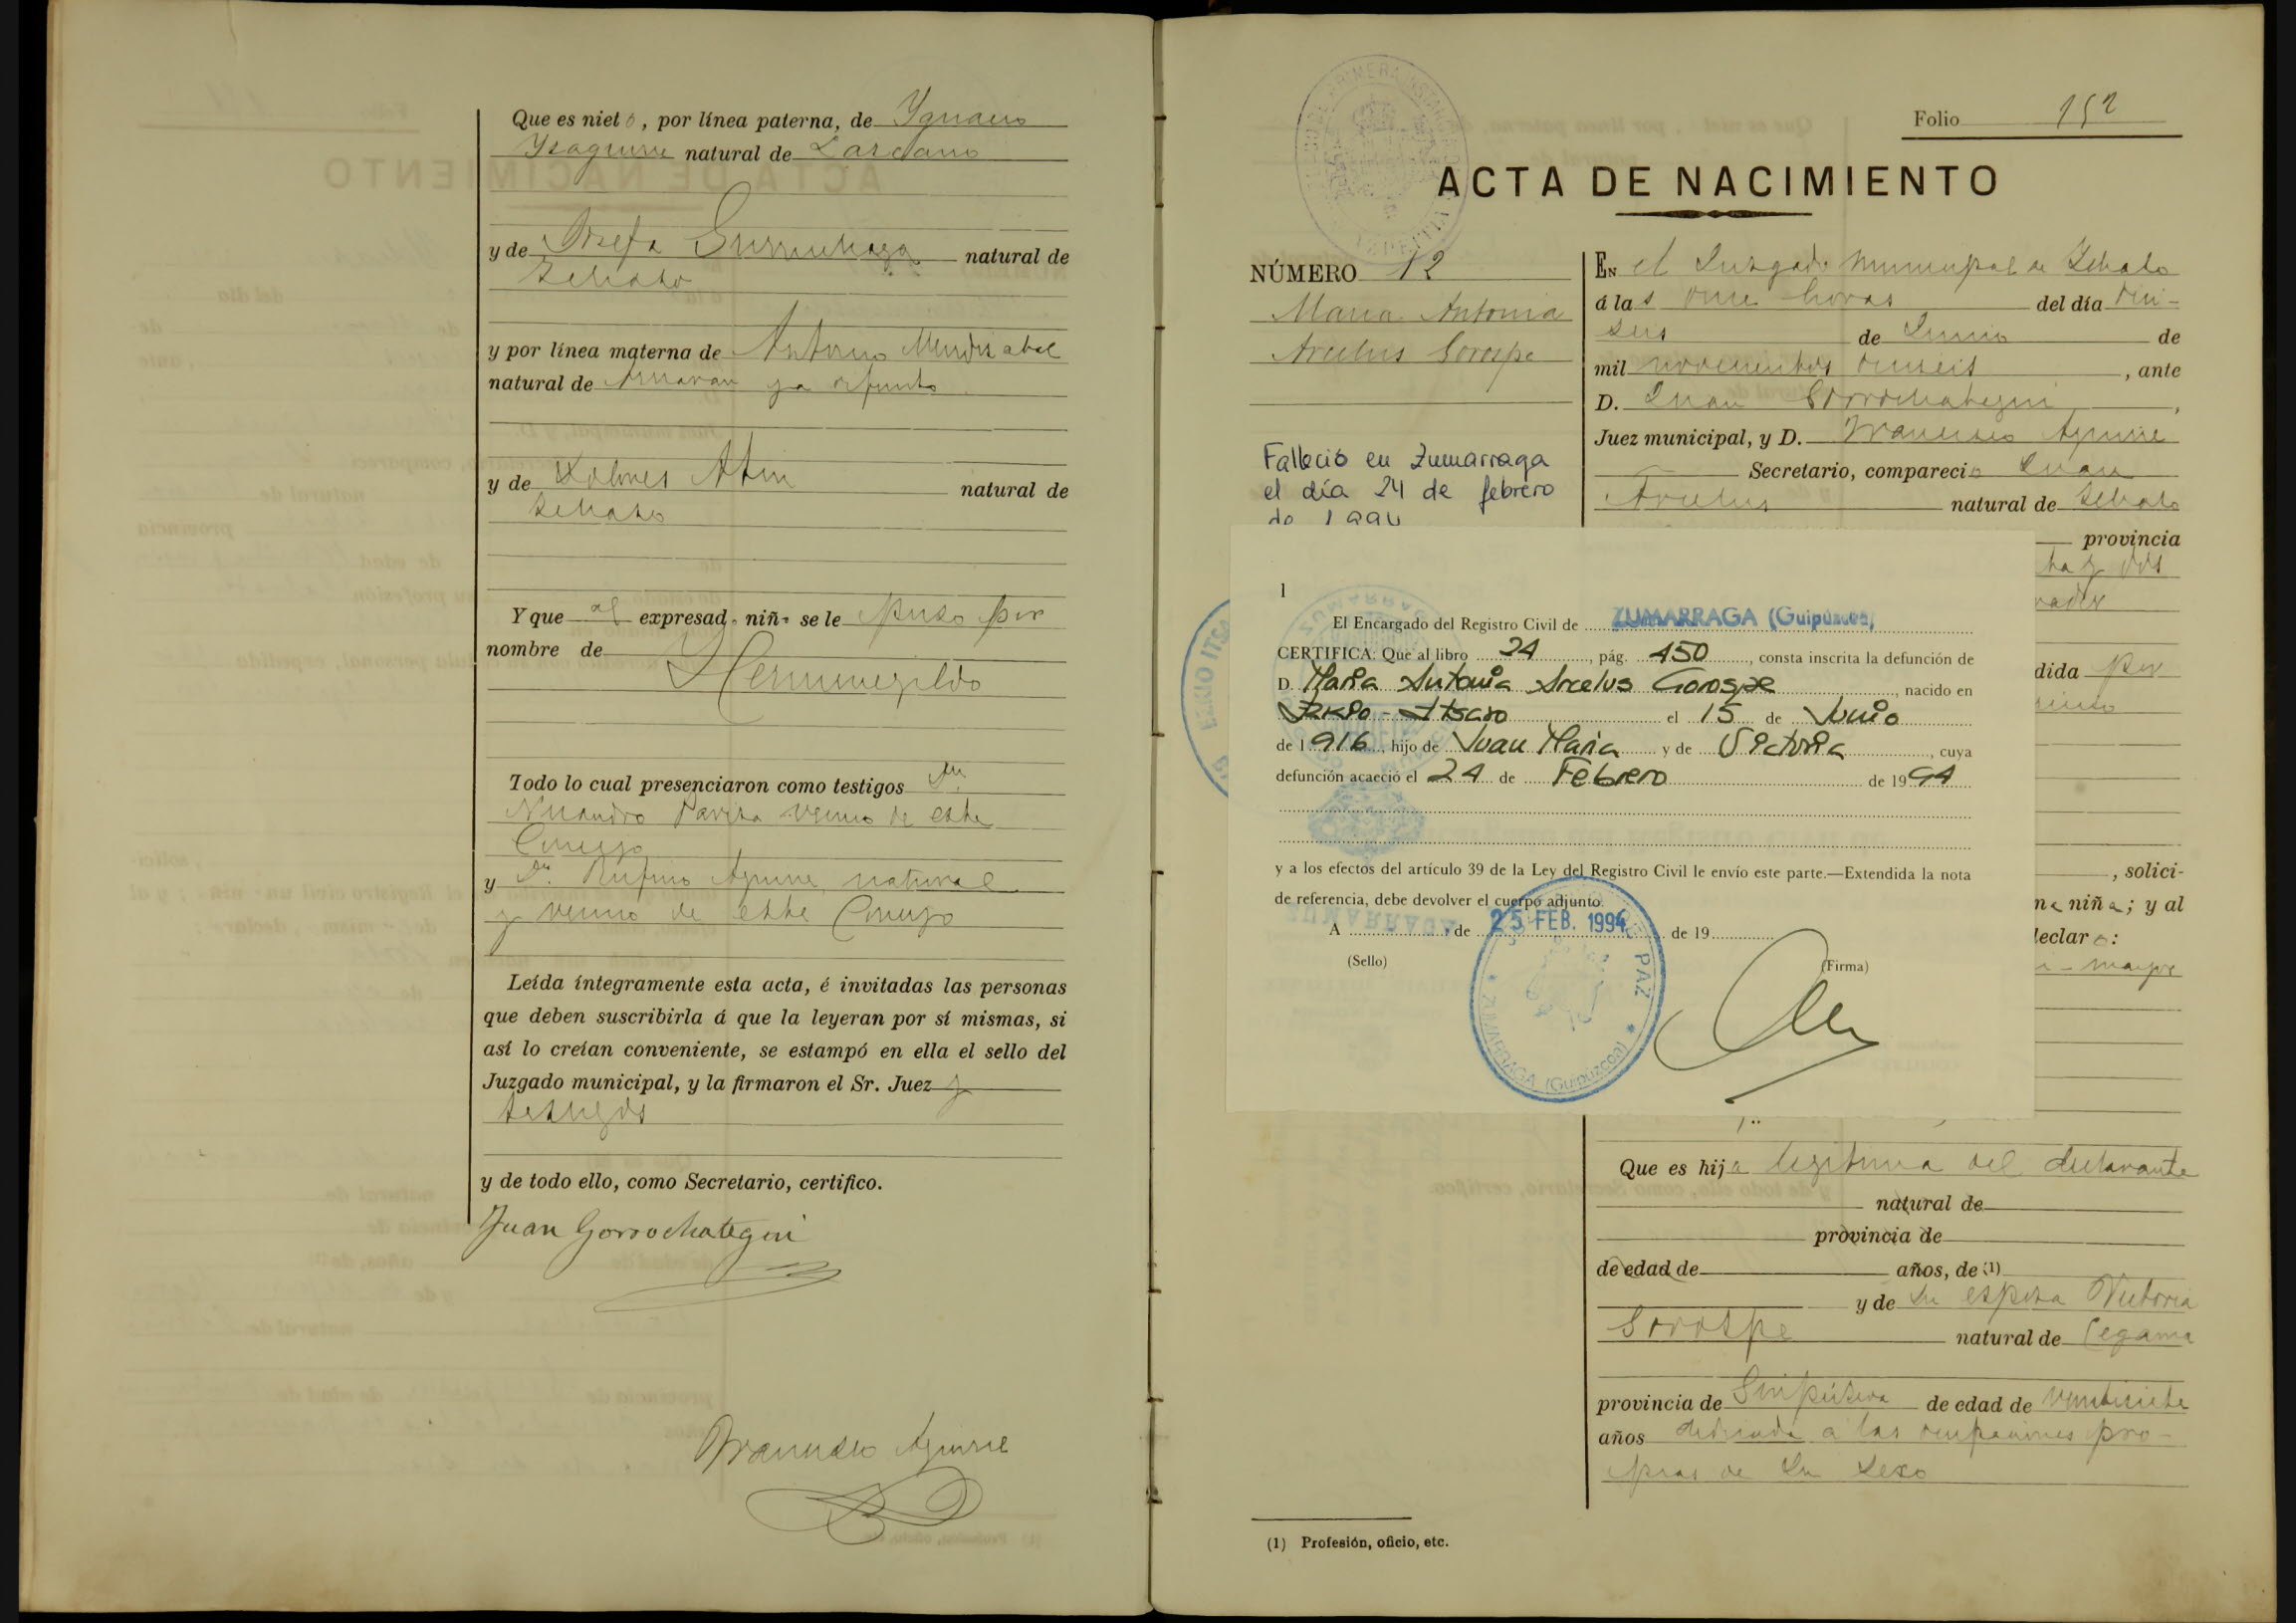 Que es nieto, por línea paterna, de Ygnacio
Ysaguirre natural de Lazcano
y de Josefa Gurruchaga natural de
y por línea materna de Antonio Mendizabal
natural de ya difunto
y de Dolores natural de
Y que al expresado niño se le puso por
nombre de
Hermenegildo
Todo lo cual presenciaron como testigos Dn.
Nicandro vecino de este
Concejo
y Dn. Rufino Aguirre natural
y vecino de este Concejo
Leída íntegramente esta acta, é invitadas las personas
que deben suscribirla á que la leyeran por sí mismas, si
así lo creían conveniente, se estampó en ella el sello del
Juzgado municipal, y la firmaron el Sr. Juez y
testigos
y de todo ello, como Secretario, certifico.
Juan Gorrochategui
Francisco Aguirre
Folio 152
ACTA DE NACIMIENTO
NÚMERO 12
Maria Antonia
Arcelus Gorospe
Falleció en Zumarraga
el día 24 de febrero
de 1994
EN el Juzgado municipal de
á las once horas del día diez
seis de Junio de
mil novecientos dieciseis, ante
D. Juan Gorrochategui,
Juez municipal, y D. Francisco Aguirre
Secretario, compareció Juan
Arcelus natural de
provincia
ta y dos
dida por
, solici-
na niña; y al
declaró:
mayor
1
El Encargado del Registro Civil de ZUMARRAGA (Guipúzcoa)
CERTIFICA: Que al libro 24, pág. 450, consta inscrita la defunción de
D. Maria Antonia Arcelus Gorospe, nacido en
Ezkio-Itsaso el 15 de Junio
de 1916, hijo de Juan Maria y de Victoria, cuya
defunción acaeció el 24 de Febrero de 1994
y a los efectos del artículo 39 de la Ley del Registro Civil le envío este parte.—Extendida la nota
de referencia, debe devolver el cuerpo adjunto.
A , de 25 FEB. 1994 de 19
(Sello) (Firma)
PAZ * ZUMARRAGA (Guipúzcoa) *
Que es hija legitima del declarante
natural de
provincia de
de edad de años, de (1)
y de su esposa Victoria
Gorospe natural de Cegama
provincia de Guipúzcoa de edad de veintisiete
años dedicada a las ocupaciones pro-
pias de su sexo
(1) Profesión, oficio, etc.